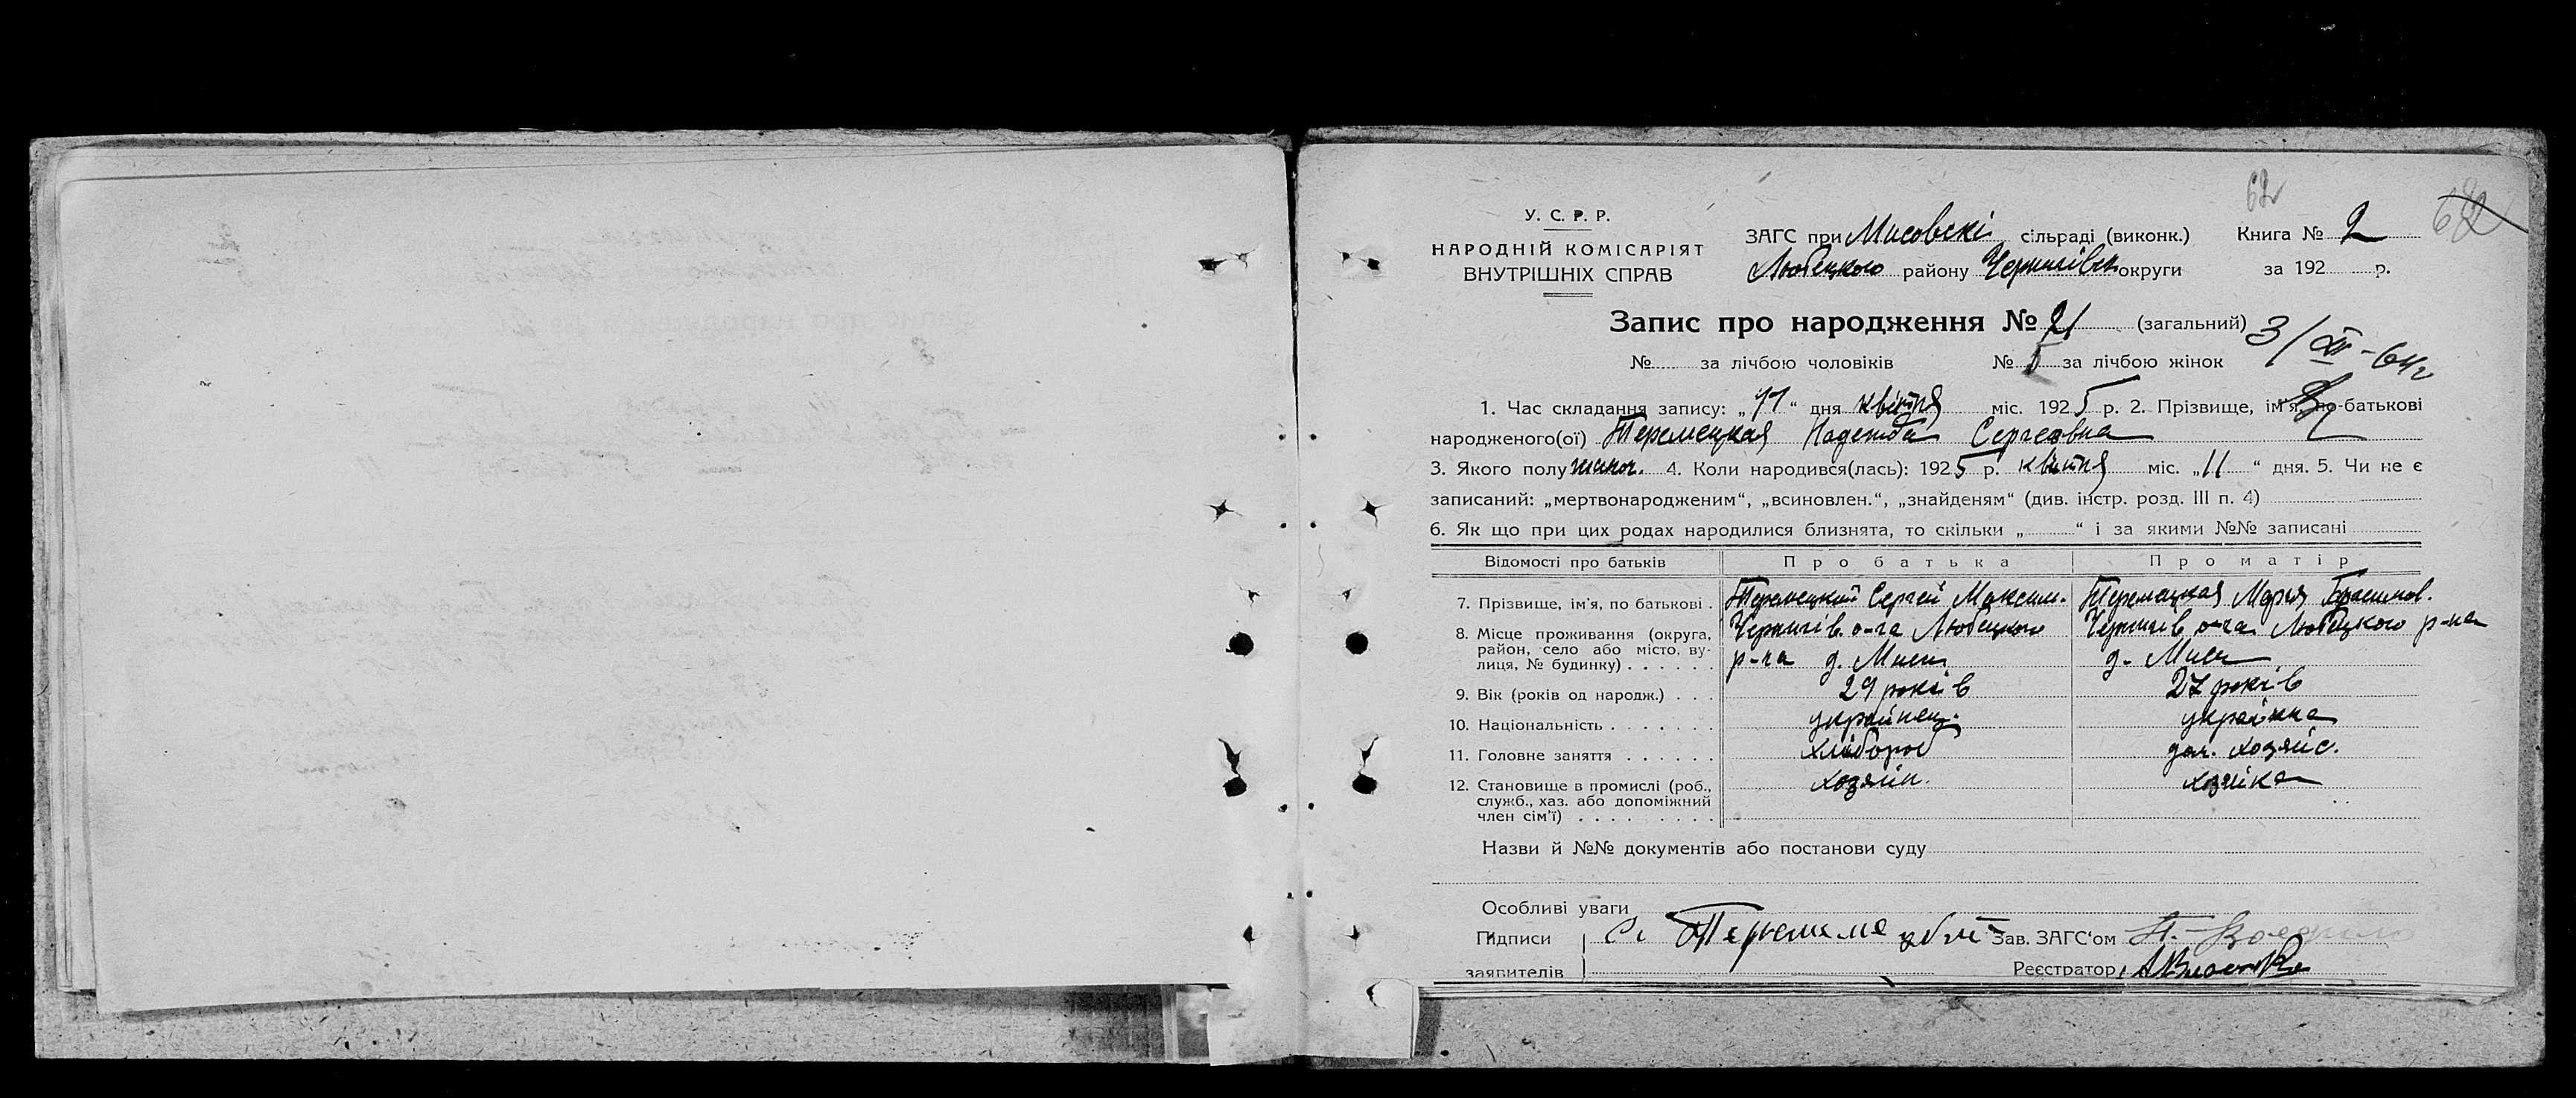 62
62
У. С. Р. Р.
НАРОДНІЙ КОМІСАРІЯТ
ВНУТРІШНІХ СПРАВ
ЗАГС при Мисовскі сільраді (виконк.) Книга № 2
Любецкого району Чернигівск округи за 192 р.
Запис про народження № 21 (загальний)
3/XII-64г
№ за лічбою чоловіків № 5 за лічбою жінок
1. Час складання запису: „11“ дня квітня міс. 1925 р. 2. Прізвище, ім'я, по-батькові
народженого(ої) Теремецкая Надежда Сергеевна
3. Якого полу жиноч. 4. Коли народився(лась): 1925 р. квітня міс. „11“ дня. 5. Чи не є
записаний: „мертвонародженим“, „всиновлен.“, „знайденям“ (див. інстр. розд. III п. 4)
6. Як що при цих родах народилися близнята, то скільки „ “ і за якими №№ записані
Відомості про батьків Про батька Про матір
7. Прізвище, ім'я, по батькові . Теремецкий Сергей Максим. Теремецкая Марья
8. Місце проживання (округа, район, село або місто, вулиця, № будинку) . . . . . . Чернигів. о-га Любецкого Чернигів о-га Любецкого р-на
р-на д. Миси д. Миси
9. Вік (років од народж.) . . . 29 років 27 років
10. Національність . . . . . . . українец. українка
11. Головне заняття . . . . . . хлібороб дом. хозяйс.
12. Становище в промислі (роб., служб., хаз. або допоміжний член сім'ї) . . . . . . . . хозяін. хозяйка
Назви й №№ документів або постанови суду
Особливі уваги
Підписи С. Зав. ЗАГС'ом П.
заявителів Реєстратор